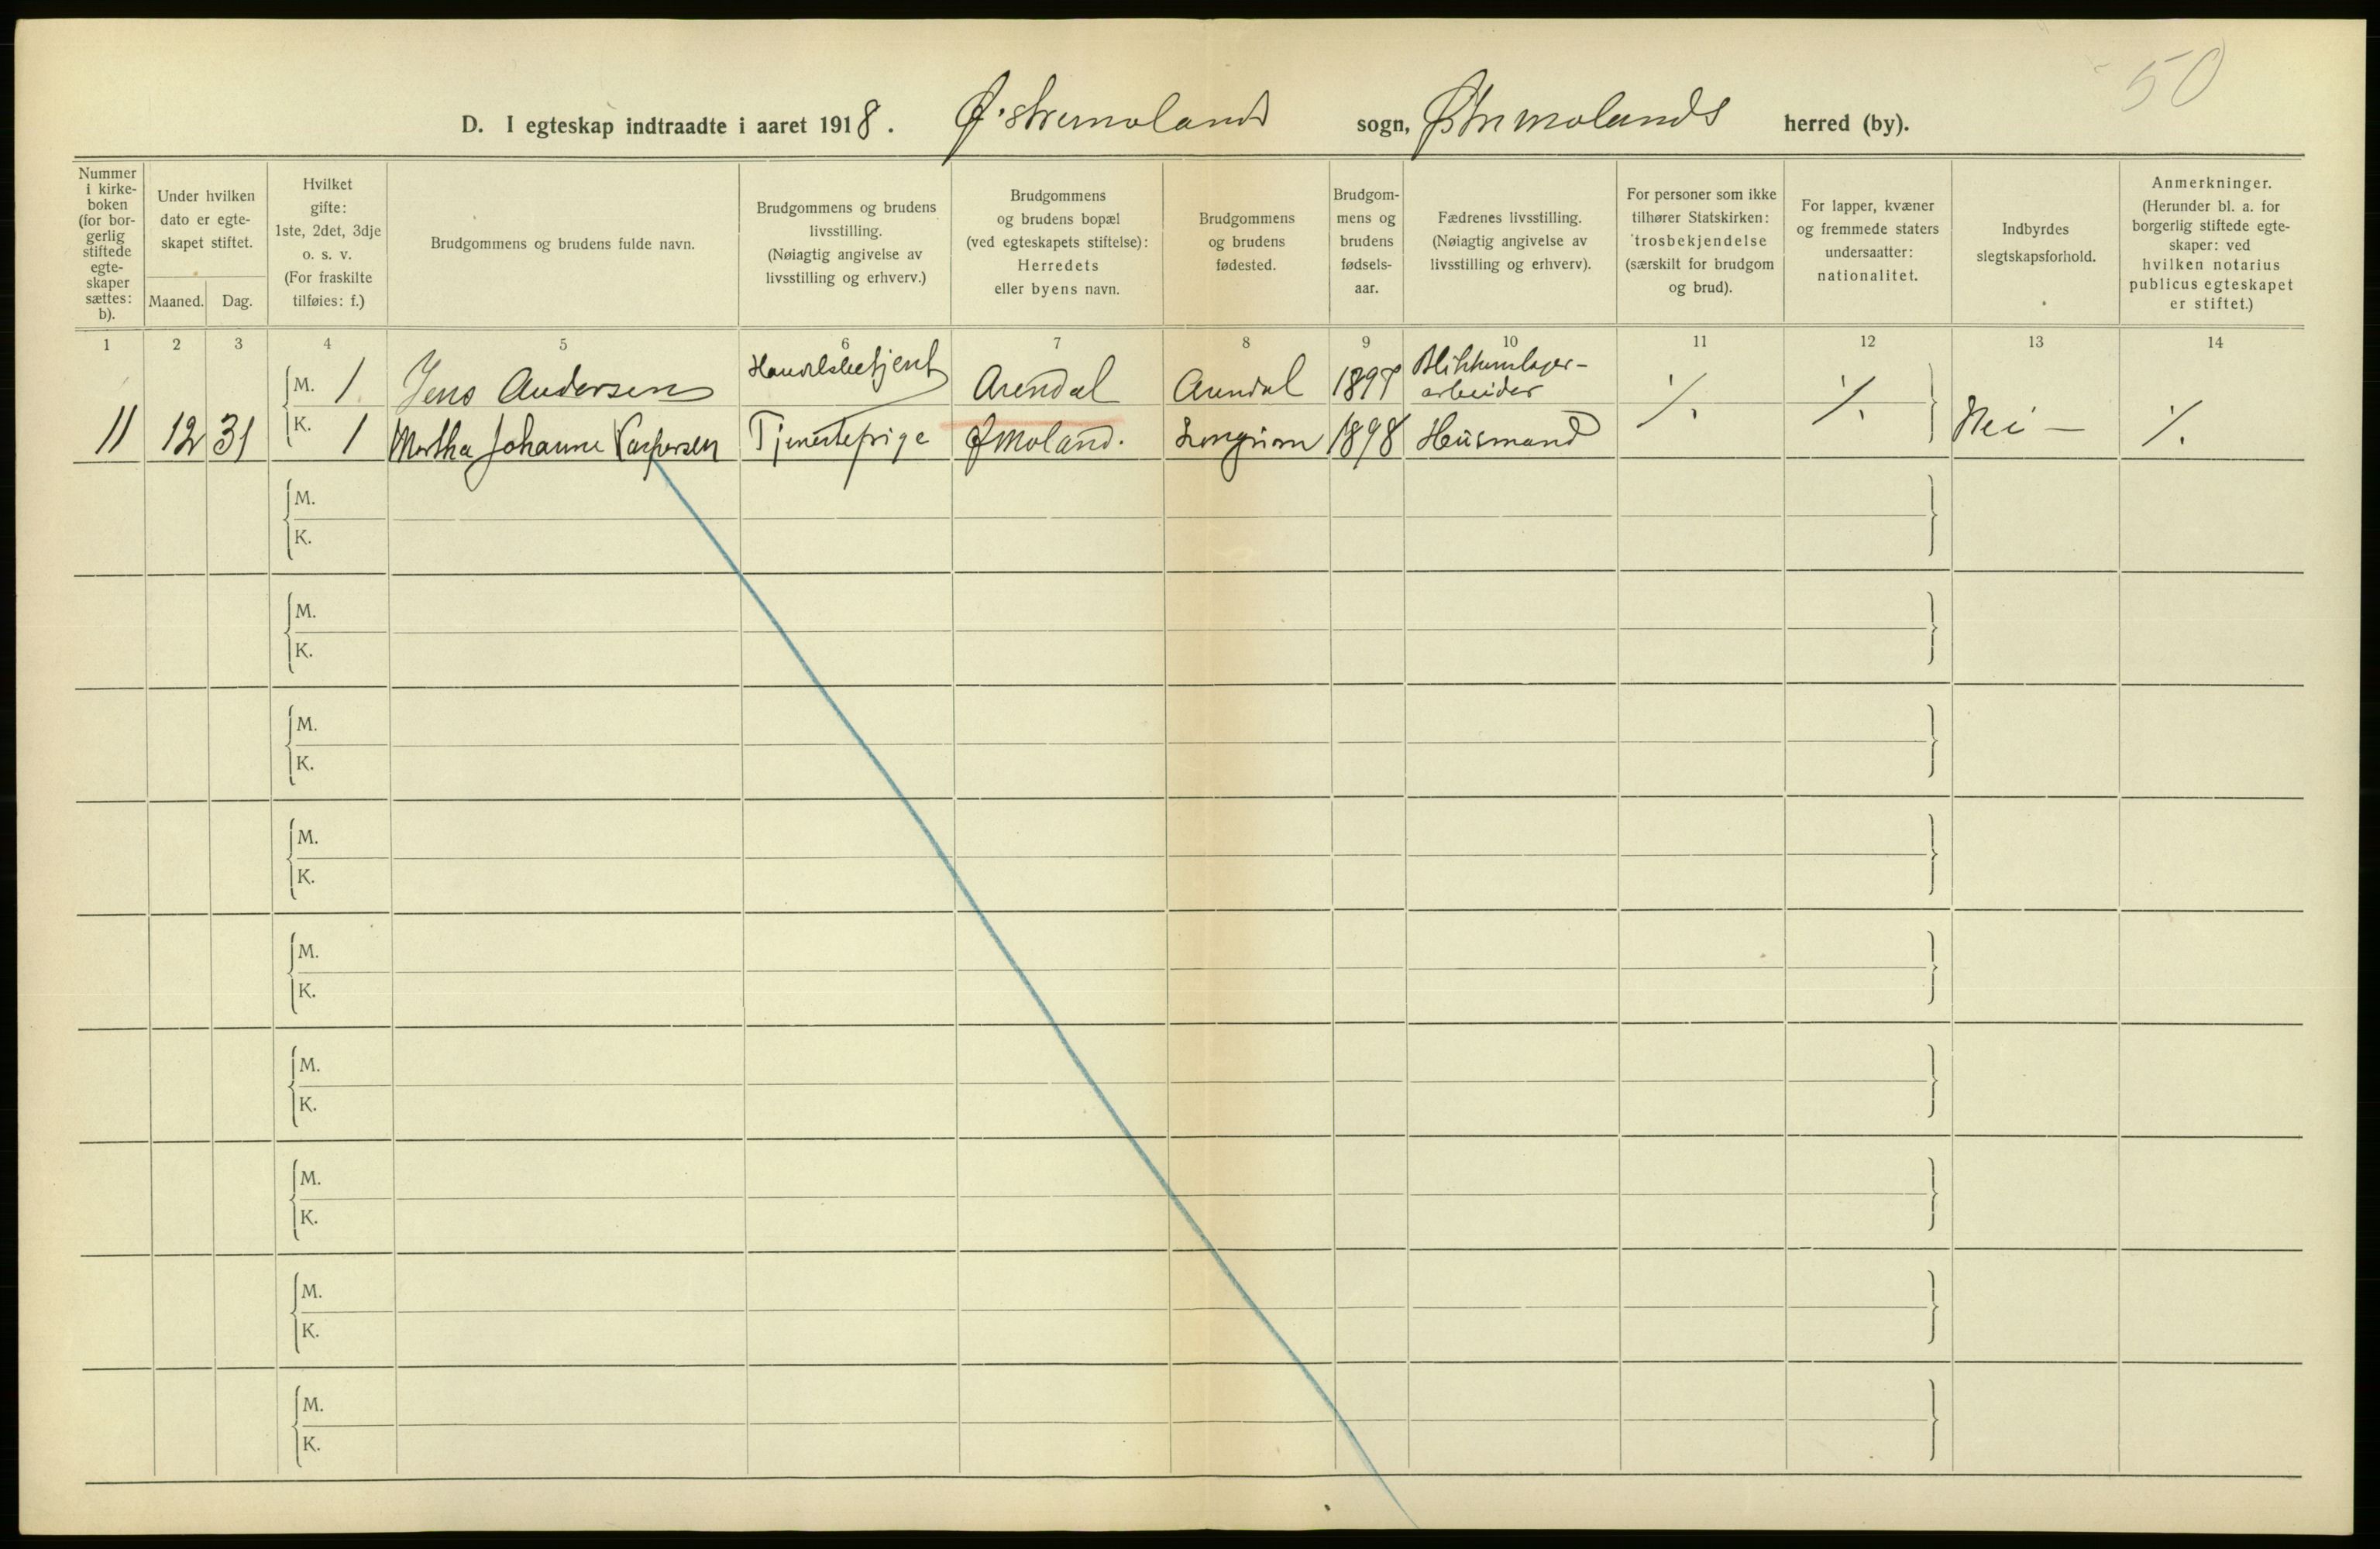 50
D. I egteskap indtraadte i aaret 1918. Østremolands sogn, Østremolands herred (by).
Nummer i kirke- boken (for bor- gerlig stiftede egte- skaper sættes: b).
Under hvilken dato er egte- skapet stiftet.
Maaned. Dag.
Hvilket gifte: 1ste, 2det, 3dje o. s. v. (For fraskilte tilføies: f.)
Brudgommens og brudens fulde navn.
Brudgommens og brudens livsstilling. (Nøiagtig angivelse av livsstilling og erhverv.)
Brudgommens og brudens bopæl (ved egteskapets stiftelse): Herredets eller byens navn.
Brudgommens og brudens fødested.
Brudgom- mens og brudens fødsels- aar.
Fædrenes livsstilling. (Nøiagtig angivelse av livsstilling og erhverv).
For personer som ikke tilhører Statskirken: trosbekjendelse (særskilt for brudgom og brud).
For lapper, kvæner og fremmede staters undersaatter: nationalitet.
Indbyrdes slegtskapsforhold.
Anmerkninger. (Herunder bl. a. for borgerlig stiftede egte- skaper: ved hvilken notarius publicus egteskapet er stiftet.)
1 2 3 4 5 6 7 8 9 10 11 12 13 14
M. 1 Jens Andersen Handelsbetjent Arendal Arendal 1897 Blikkenslager- arbeider ./. ./.
11 12 31 K. 1 Martha Johanne Caspersen Tjenestepige Ø Moland. 1898 Husmand Nei — ./.
M.
K.
M.
K.
M.
K.
M.
K.
M.
K.
M.
K.
M.
K.
M.
K.
M.
K.